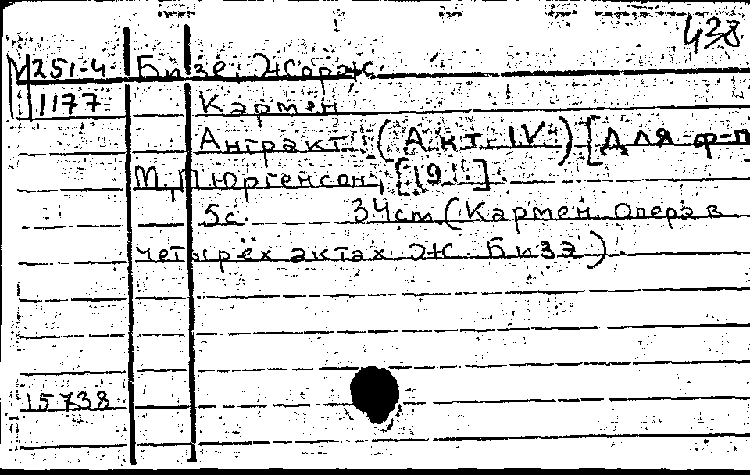 438
М251-4 Бизе, Жорж.
1177 Кармен
Антракт. (Акт. IV.) [Для ф-п
М., П. Юргенсон, [19..].
5с. 34cm (Кармен. Опера в
четырёх актах Ж. Бизэ).
15738